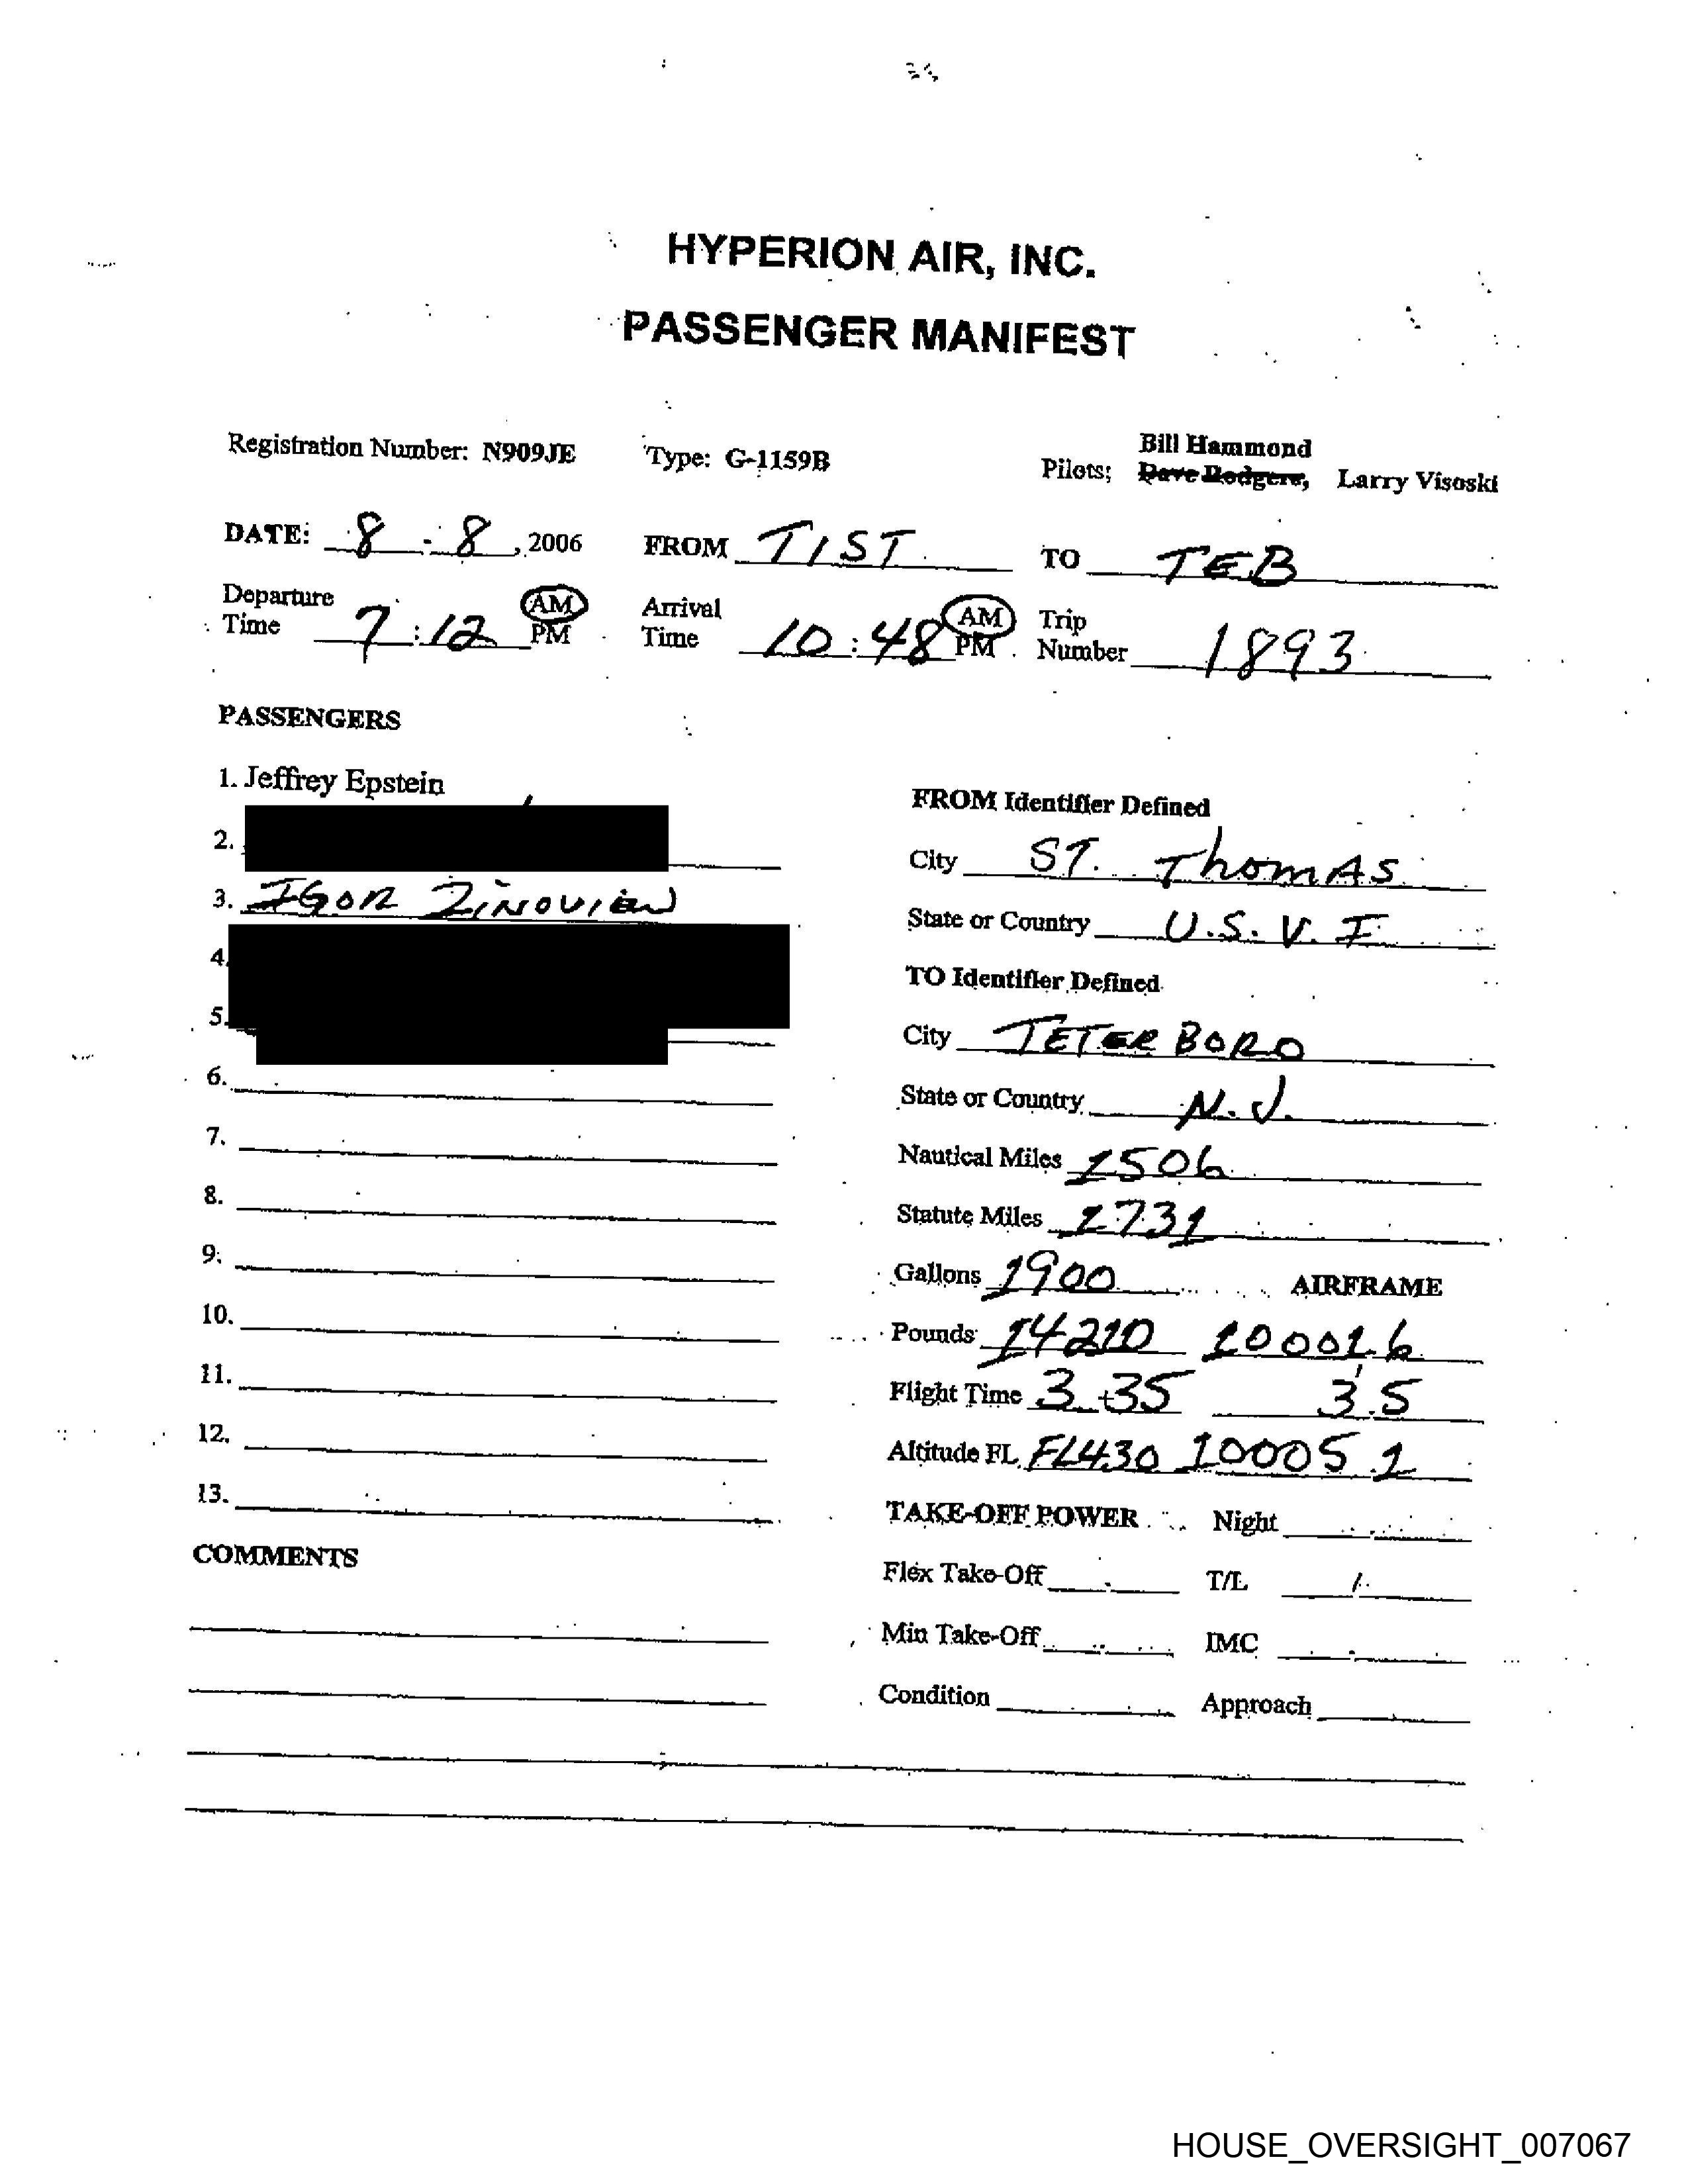 HYPERION AIR, INC.
PASSENGER MANIFEST
Registration Number: N909JE Type: G-1159B Pilots; Bill Hammond
Dave Rodgers, Larry Visoski
DATE: 8 - 8, 2006 FROM TIST TO TEB
Departure Time 7:12 AM PM Arrival Time 10:48 AM PM Trip Number 1893
PASSENGERS
1. Jeffrey Epstein
FROM Identifier Defined
2.
City ST. ThomAS
3. IGOR ZINOVIEW
State or Country U.S.V.I
4.
TO Identifier Defined
5.
City TETERBORO
6.
State or Country N.J.
7.
Nautical Miles 1506
8.
Statute Miles 1731
9.
Gallons 1900 AIRFRAME
10.
Pounds 14210 10001.6
11.
Flight Time 3+35 3.5
12.
Altitude FL FL430 10005.1
13.
TAKE-OFF POWER Night
COMMENTS
Flex Take-Off T/L /
Min Take-Off IMC
Condition Approach
HOUSE_OVERSIGHT_007067